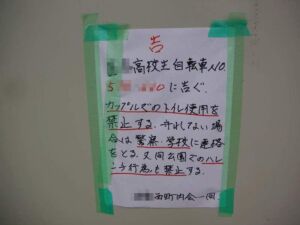 告
高校生自転車NO.
5 0に告ぐ.
カップルでのトイレ使用を
禁止する. 守れない場
合は警察・学校に連絡
をとる. 又同公園でのハレ
ンチ行為も禁止する.
西町内会一同